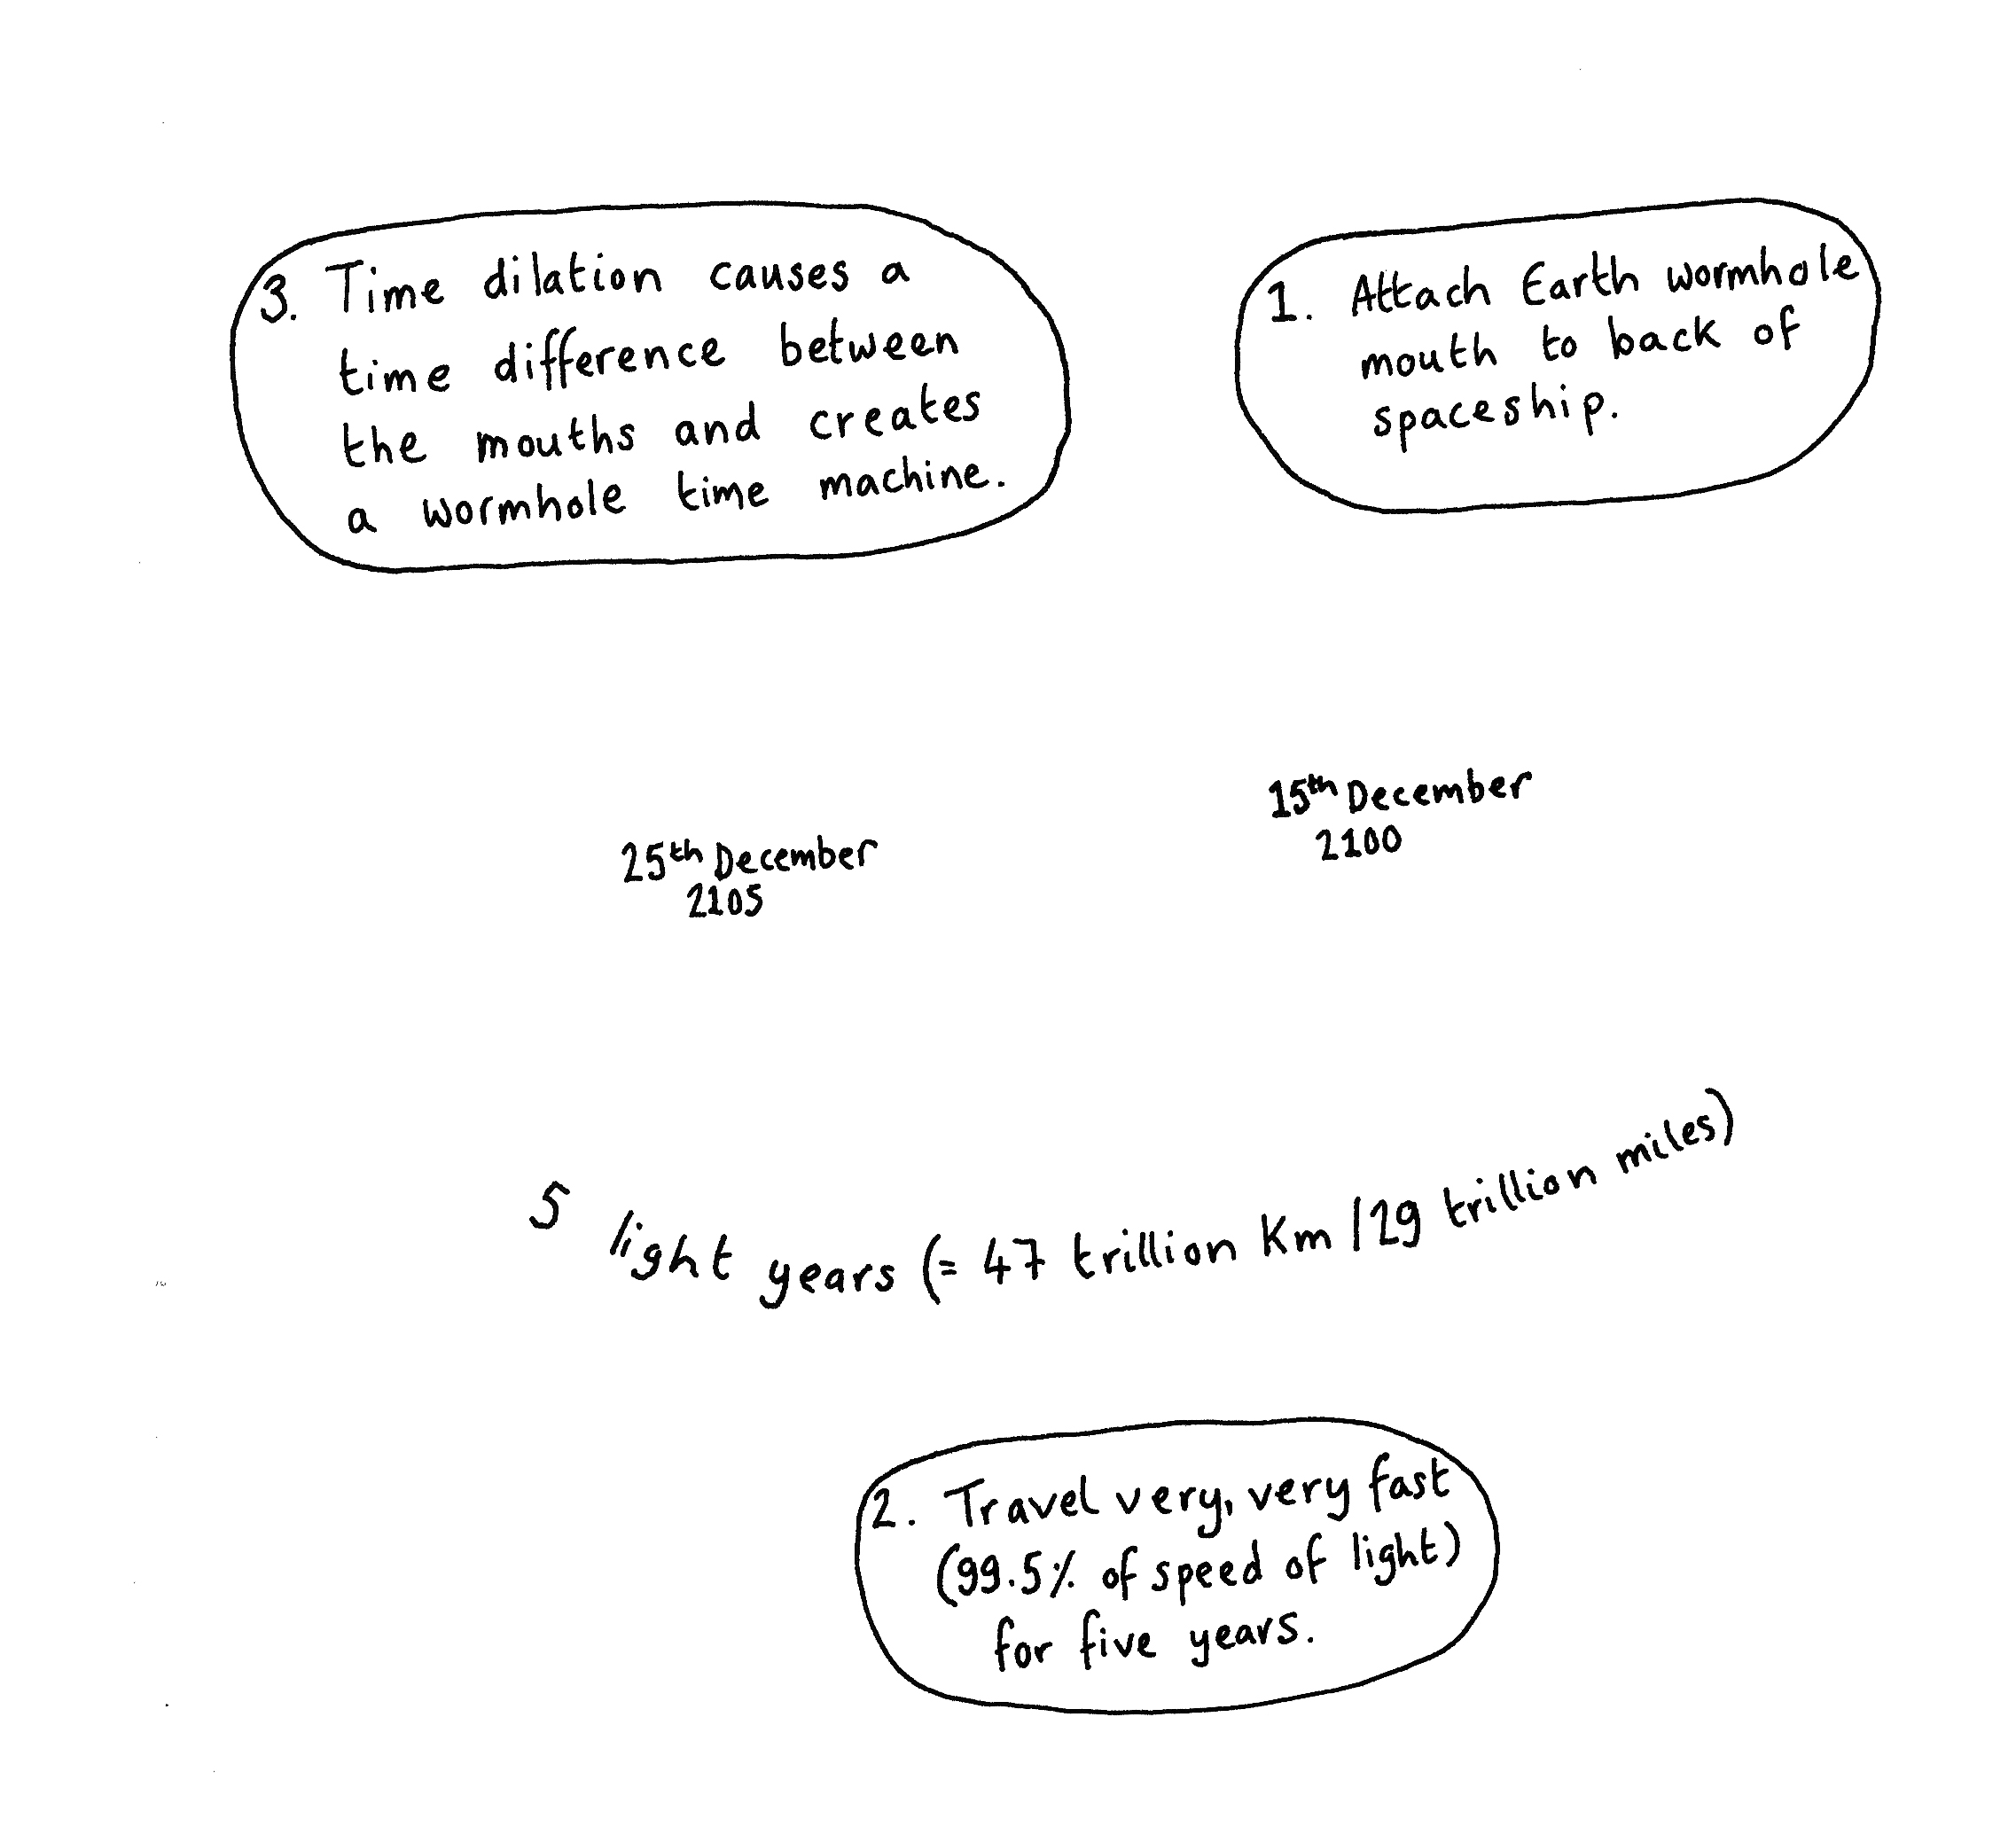 3. Time dilation causes a
time difference between
the mouths and creates
a wormhole time machine.
1. Attach Earth wormhole
mouth to back of
spaceship.
25th December
2105
15th December
2100
5 light years (= 47 trillion Km / 29 trillion miles)
2. Travel very, very fast
(99.5% of speed of light)
for five years.